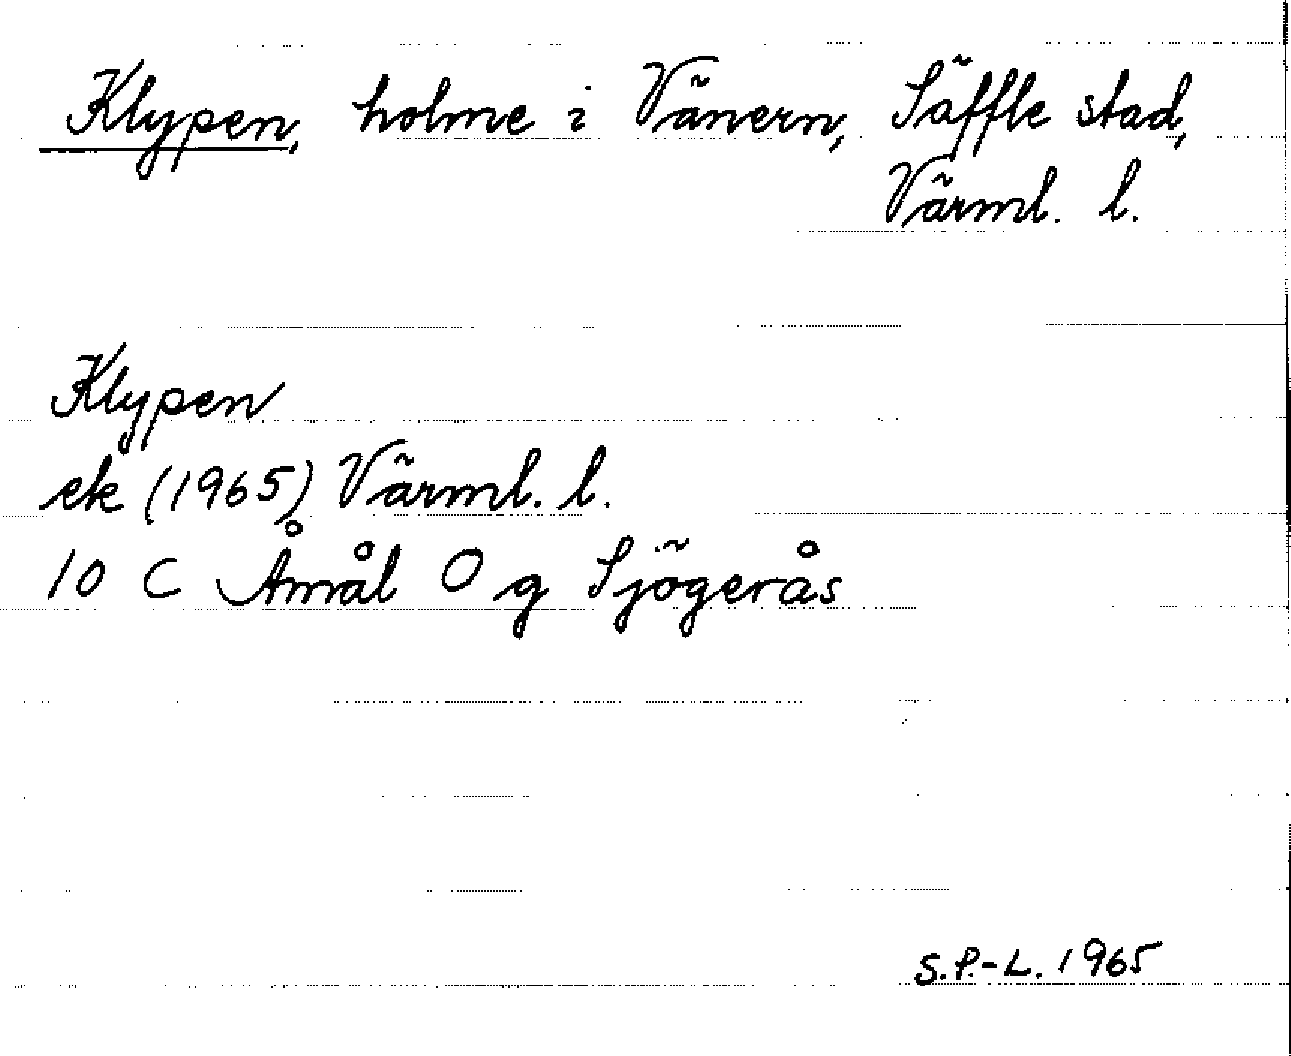 Klypen, holme i Vänern, Säffle stad,
Värml. l.
Klypen
ek (1965) Värml. l.
10 C Åmål O g Sjögerås
S.P.-L. 1965